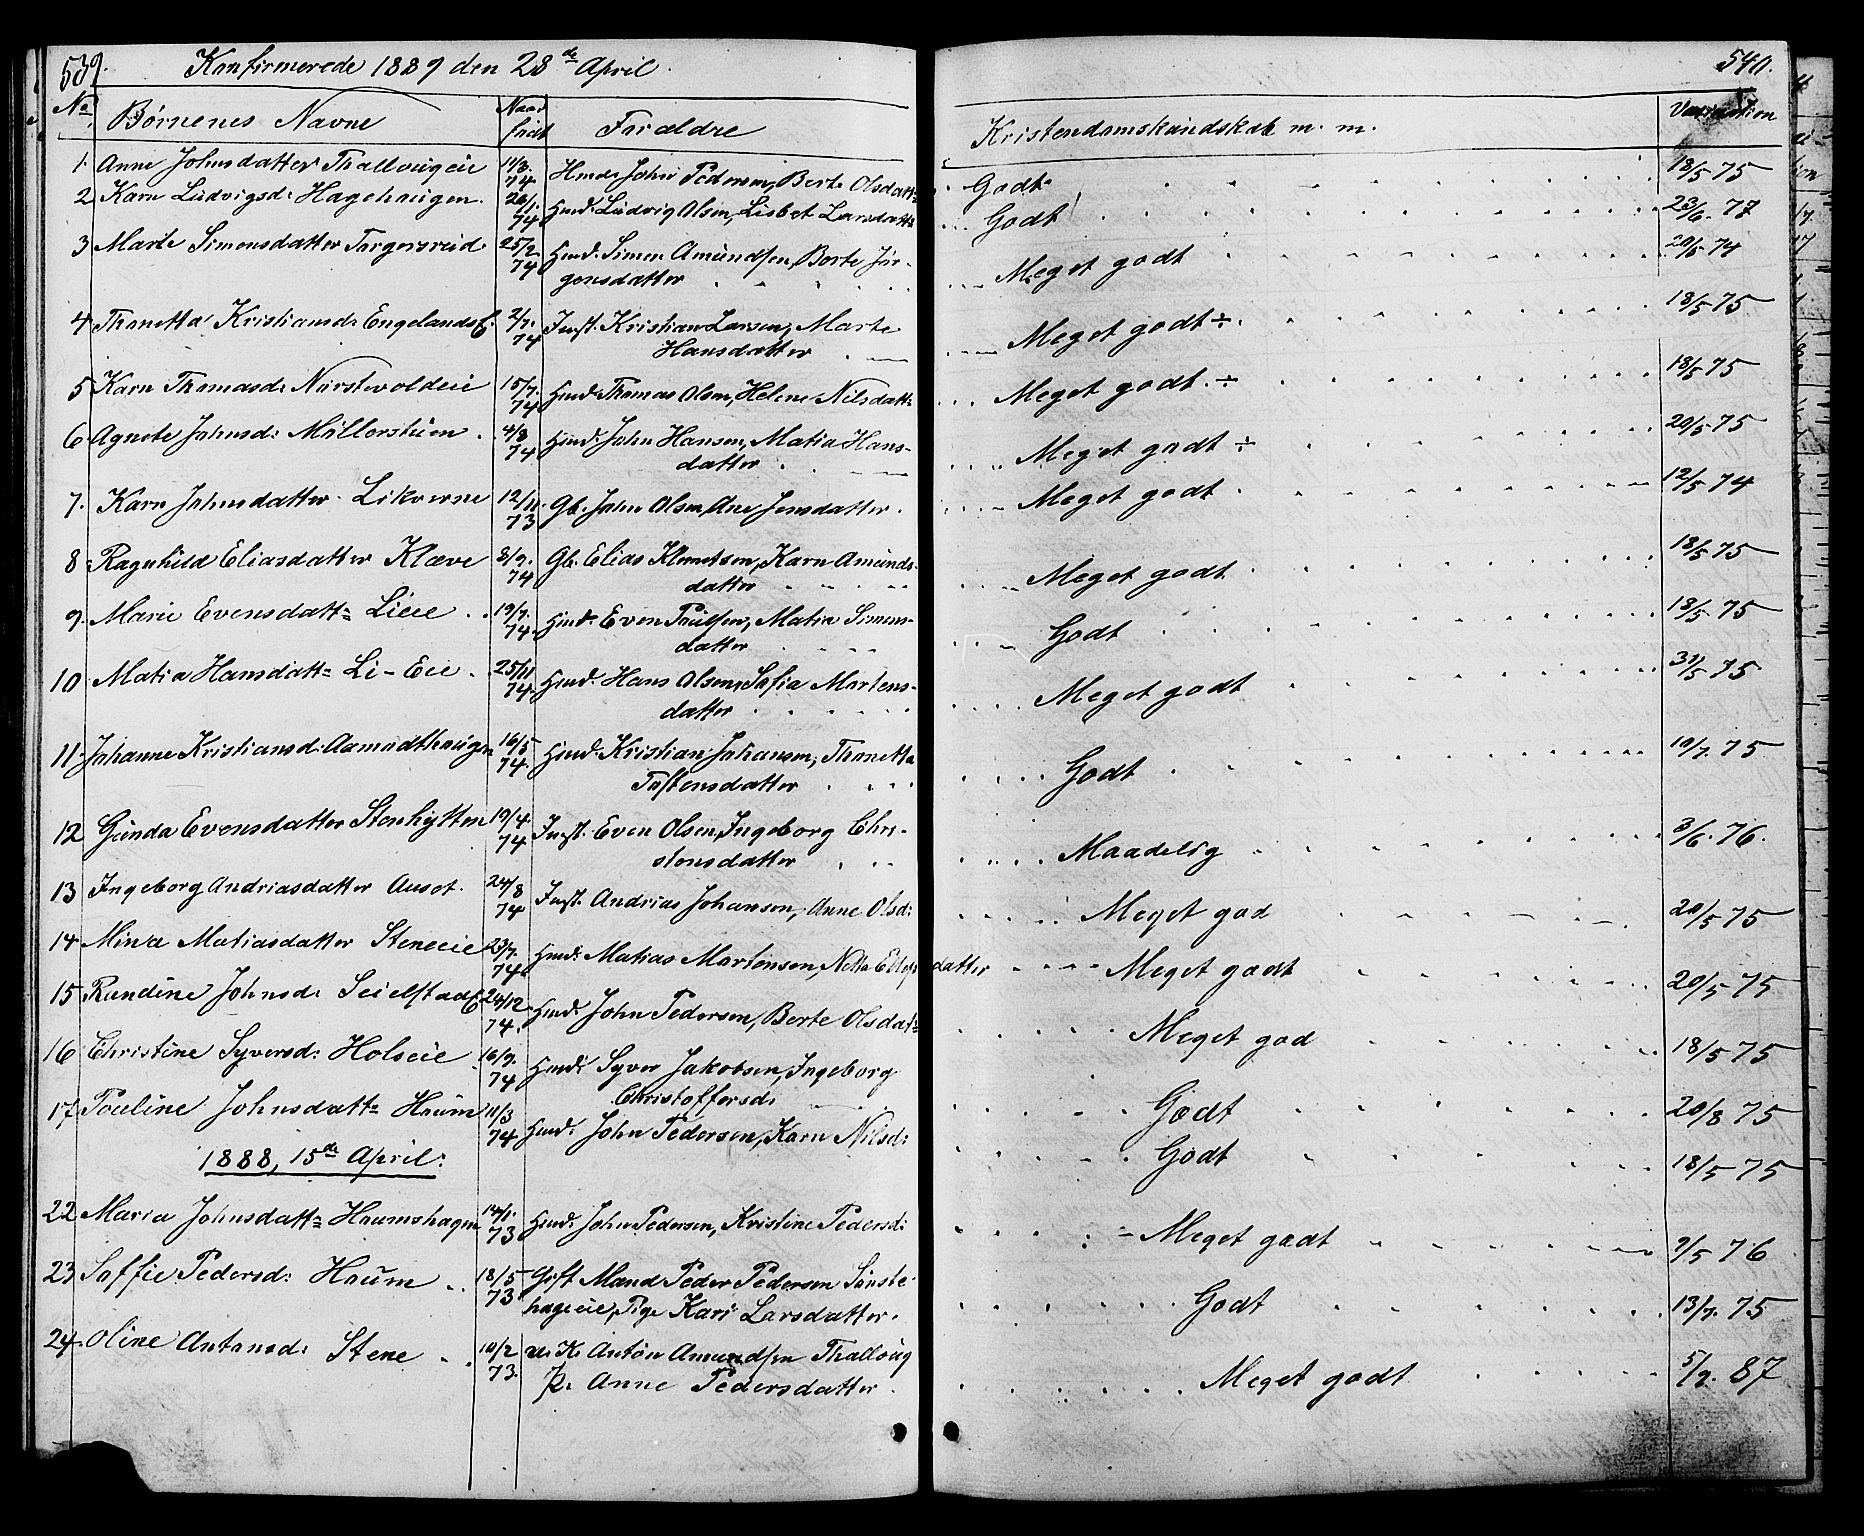 539.
Konfirmerede 1889 den 28de April.
No Børnenes Navne Naar født Forældre
1. Anne Johnsdatter Thallougeie 11/3. 74 Hmd: John Pedersen, Berte Olsdatt=
2 Karn Ludvigsd: Hagehaugen. 26/1. 74 Hmd: Ludvig Olsen, Lisbet Larsdatt=
3 Marte Simensdatter 25/2 74 Hmd: Simen Amundsen, Berte Jør-
gensdatter
4 Thonetta Kristiansd: Engelands E. 2/7. 74 Inst: Kristian Larsen, Marte
Hansdatter
5 Karn Thomasd: 15/7. 74 Hmd: Thomas Olsen, Helene Nilsdatt=
6 Agnete Johnsd: Møllerstuen 4/8 74 Hmd: John Hansen, Matia Hans-
datter
7. Karn Johnsdatter Likverne 12/11. 73 Gb. John Olsen, Ane Jensdatter.
8 Ragnhild Eliasdatter Kløve 8/9. 74 Gb. Elias Klemetsen, Karn Amunds-
datter
9. Marie Evensdatt= Lieie 19/7. 74. Hmd: Even Paulsen, Matia Simens-
datter
10 Matia Hansdatt= Li-Eie 25/11 74 Hmd: Hans Olsen, Sofia Martens-
datter
11. Johanne Kristiansd: Aamodthaugen 16/5 74. Hmd: Kristian Johansen, Thonetta
Tostensdatter
12 Gunda Evensdatter Stenhytten 19/4. 74 Inst: Even Olsen, Ingeborg Chri-
stensdatter
13 Ingeborg Andriasdatter 24/8 74 Inst. Andrias Johansen, Anne Olsd:
14 Mina Matiasdatter Steneeie 23/7. 74 Hmd: Matias Martensen, Netta datter
15 Randine Johnsd: Seielstad E 24/12 74. Hmd: John Pedersen, Berte Olsdat=
16 Christine Syversd: Holseie 16/9. 74 Hmd: Syver Jakobsen, Ingeborg
Christoffersd:
17. Pauline Johnsdatt= Haum 11/3 74 Hmd: John Pedersen, Karn Nilsd:
1888, 15de April:
22 Maria Johnsdatt= Haumshagen 14/1. 73 Hmd: John Pedersen, Kristine Pedersd:
23 Soffie Pedersd: Haum 18/5 73 Gift Mand Peder Pedersen Sønste-
hageeie, Pige Kari Larsdatter.
24. Oline Antonsd: Stene 10/2 73. u. K. Anton Amundsen Thalloug
p. Anne Pedersdatter.
540.
Kristendomskundskab m. m. Vaccination
Godt 18/5 75
Godt 23/6. 77
Meget godt 20/5 74
Meget godt ÷ 18/5 75
Meget godt. ÷ 18/5 75
Meget godt ÷ 20/5 75
Meget godt 12/5 74
Meget godt 18/5 75
Godt 18/5. 75
Meget godt 31/5 75
Godt 10/7. 75
Maadelig 3/6. 76.
Meget god 20/5 75
Meget godt 20/5 75
Meget god 18/5 75
Godt 20/8 75
Godt 18/5 75
Meget godt 9/5 76
Godt 13/7. 75
Meget godt 5/9. 87